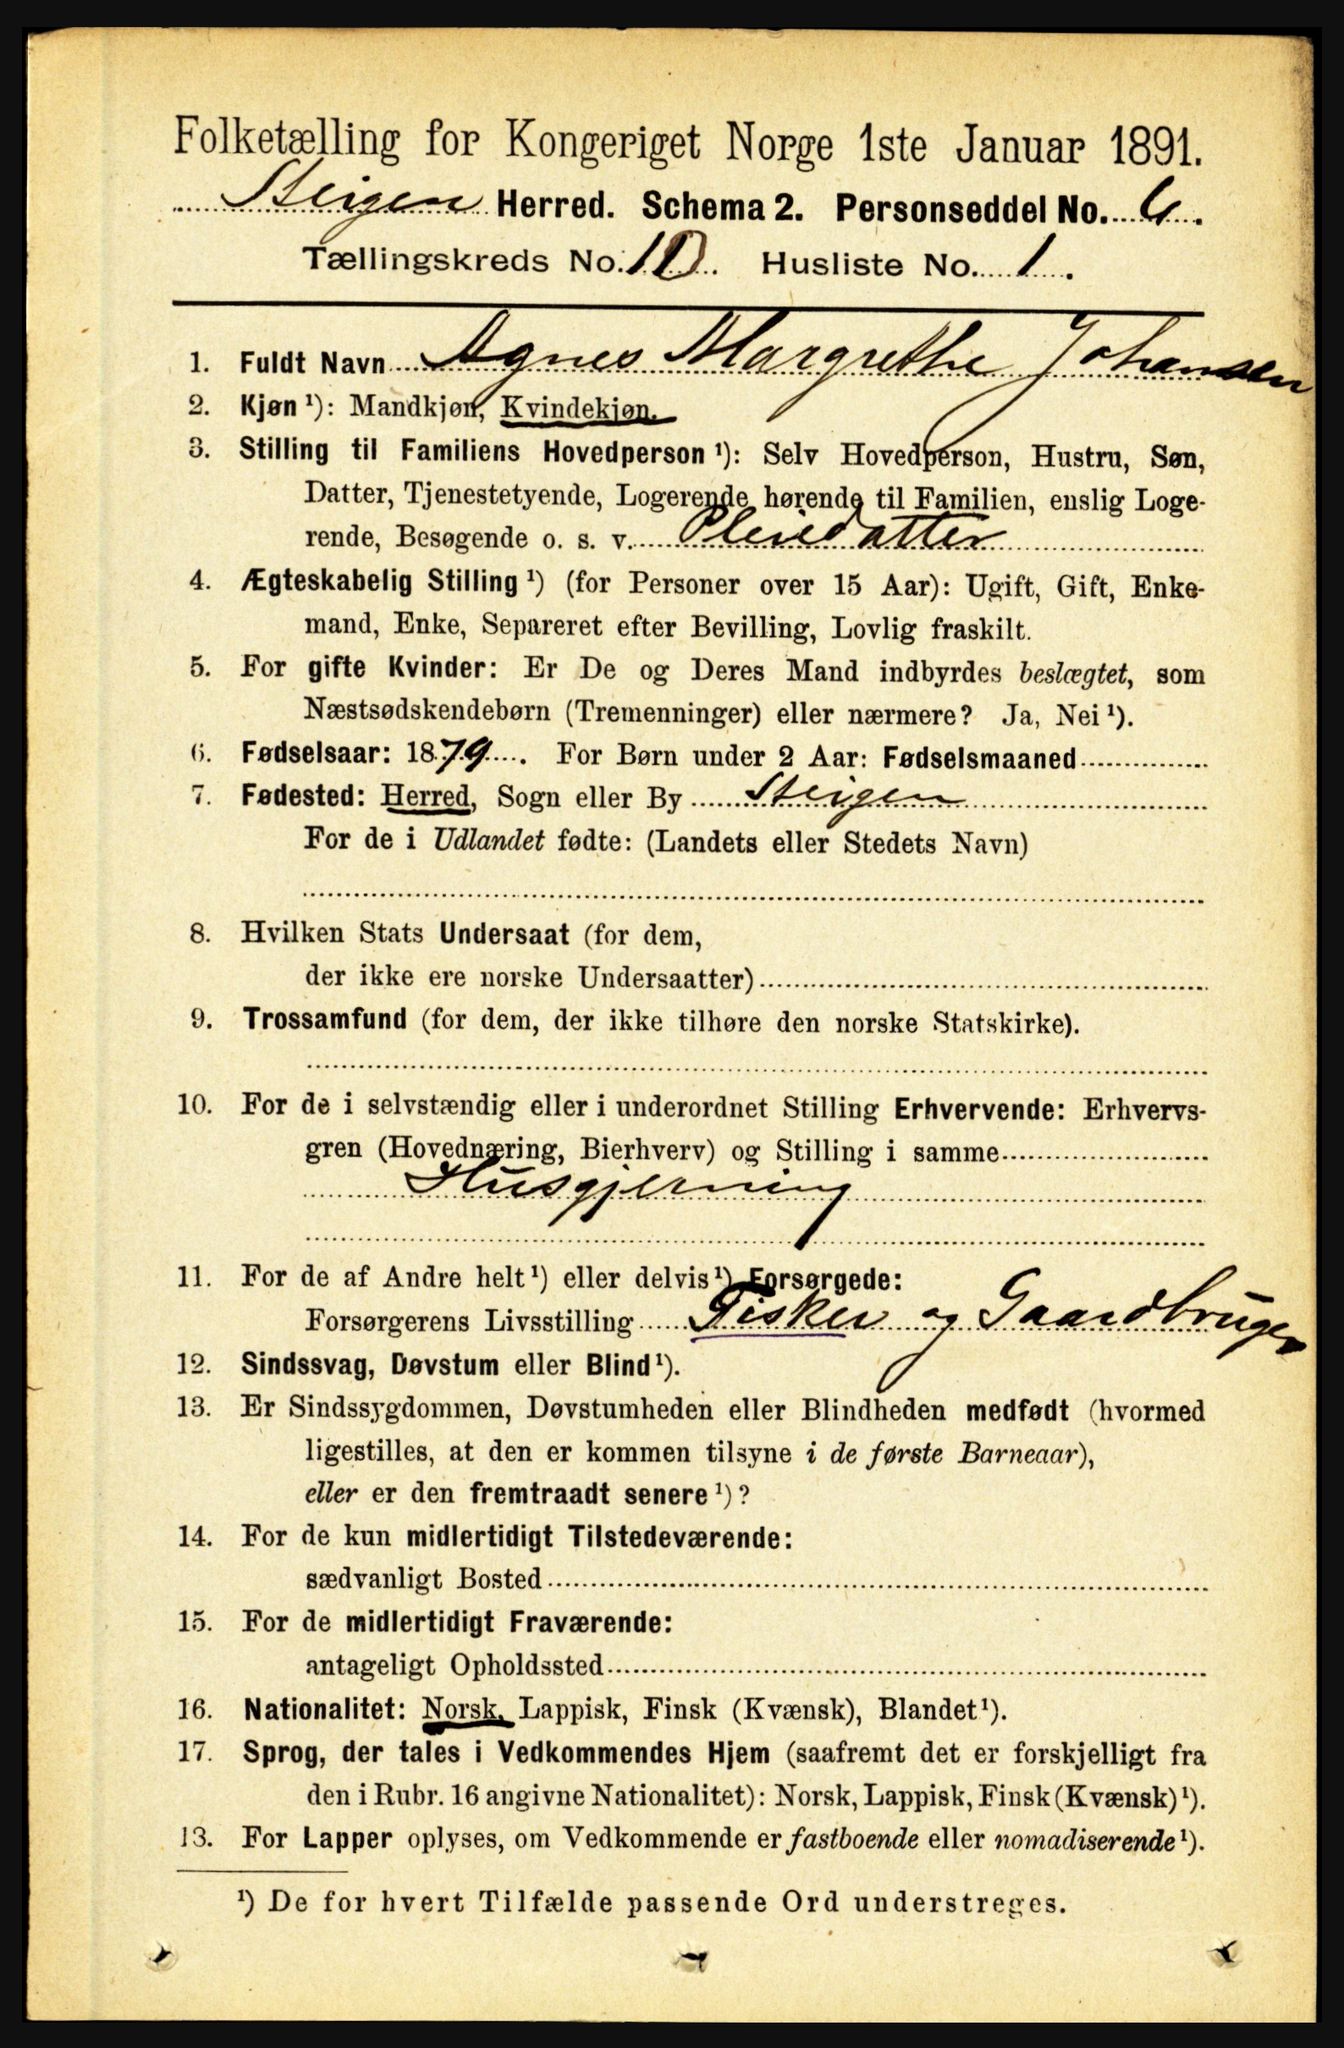 Folketælling for Kongeriget Norge 1ste Januar 1891.
Steigen Herred. Schema 2. Personseddel No. 6.
Tællingskreds No. 10. Husliste No. 1.
1. Fuldt Navn Agnes Margrethe Johansen
2. Kjøn¹): Mandkjøn, Kvindekjøn.
3. Stilling til Familiens Hovedperson¹): Selv Hovedperson, Hustru, Søn,
Datter, Tjenestetyende, Logerende hørende til Familien, enslig Loge-
rende, Besøgende o. s. v. Pleiedatter
4. Ægteskabelig Stilling¹) (for Personer over 15 Aar): Ugift, Gift, Enke-
mand, Enke, Separeret efter Bevilling, Lovlig fraskilt.
5. For gifte Kvinder: Er De og Deres Mand indbyrdes beslægtet, som
Næstsødskendebørn (Tremenninger) eller nærmere? Ja, Nei¹).
6. Fødselsaar: 1879. For Børn under 2 Aar: Fødselsmaaned
7. Fødested: Herred, Sogn eller By Steigen
For de i Udlandet fødte: (Landets eller Stedets Navn)
8. Hvilken Stats Undersaat (for dem,
der ikke ere norske Undersaatter)
9. Trossamfund (for dem, der ikke tilhøre den norske Statskirke).
10. For de i selvstændig eller i underordnet Stilling Erhvervende: Erhvervs-
gren (Hovednæring, Bierhverv) og Stilling i samme
Husgjerning
11. For de af Andre helt¹) eller delvis¹) Forsørgede:
Forsørgerens Livsstilling Fisker og Gaardbruger
12. Sindssvag, Døvstum eller Blind¹).
13. Er Sindssygdommen, Døvstumheden eller Blindheden medfødt (hvormed
ligestilles, at den er kommen tilsyne i de første Barneaar),
eller er den fremtraadt senere¹)?
14. For de kun midlertidigt Tilstedeværende:
sædvanligt Bosted
15. For de midlertidigt Fraværende:
antageligt Opholdssted
16. Nationalitet: Norsk, Lappisk, Finsk (Kvænsk), Blandet¹).
17. Sprog, der tales i Vedkommendes Hjem (saafremt det er forskjelligt fra
den i Rubr. 16 angivne Nationalitet): Norsk, Lappisk, Finsk (Kvænsk)¹).
13. For Lapper oplyses, om Vedkommende er fastboende eller nomadiserende¹).
¹) De for hvert Tilfælde passende Ord understreges.